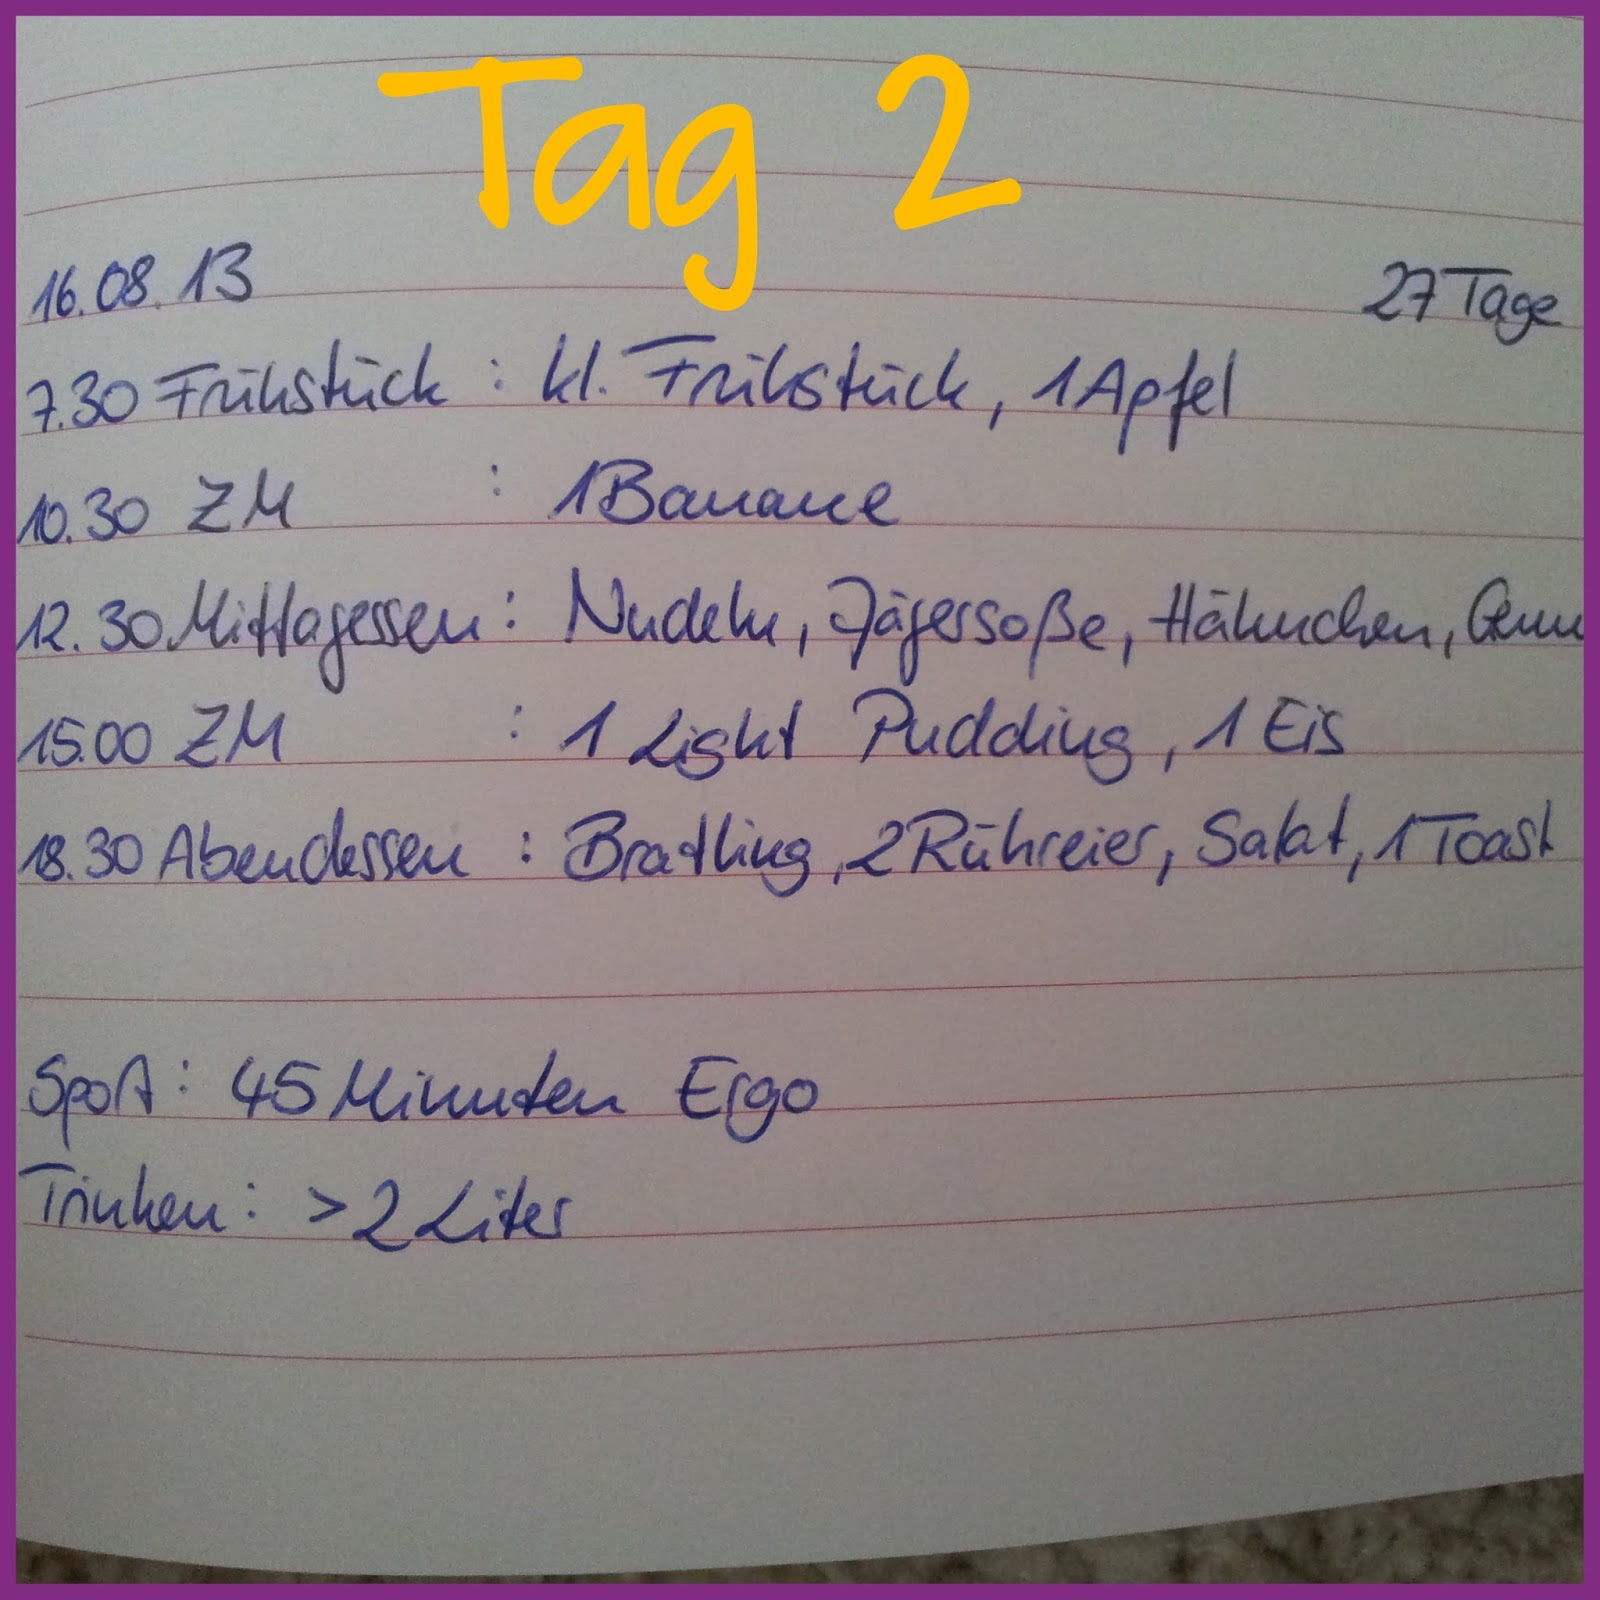 Tag 2
16.08.13 27 Tage
7.30 Frühstück : kl. Frühstück, 1 Apfel
10.30 ZM : 1 Banane
12.30 Mittagessen : Nudeln, Jägersoße, Hähnchen,
15.00 ZM : 1 Light Pudding, 1 Eis
18.30 Abendessen : Bratling, 2 Rühreier, Salat, 1 Toast
Sport : 45 Minuten Ergo
Trinken : > 2 Liter